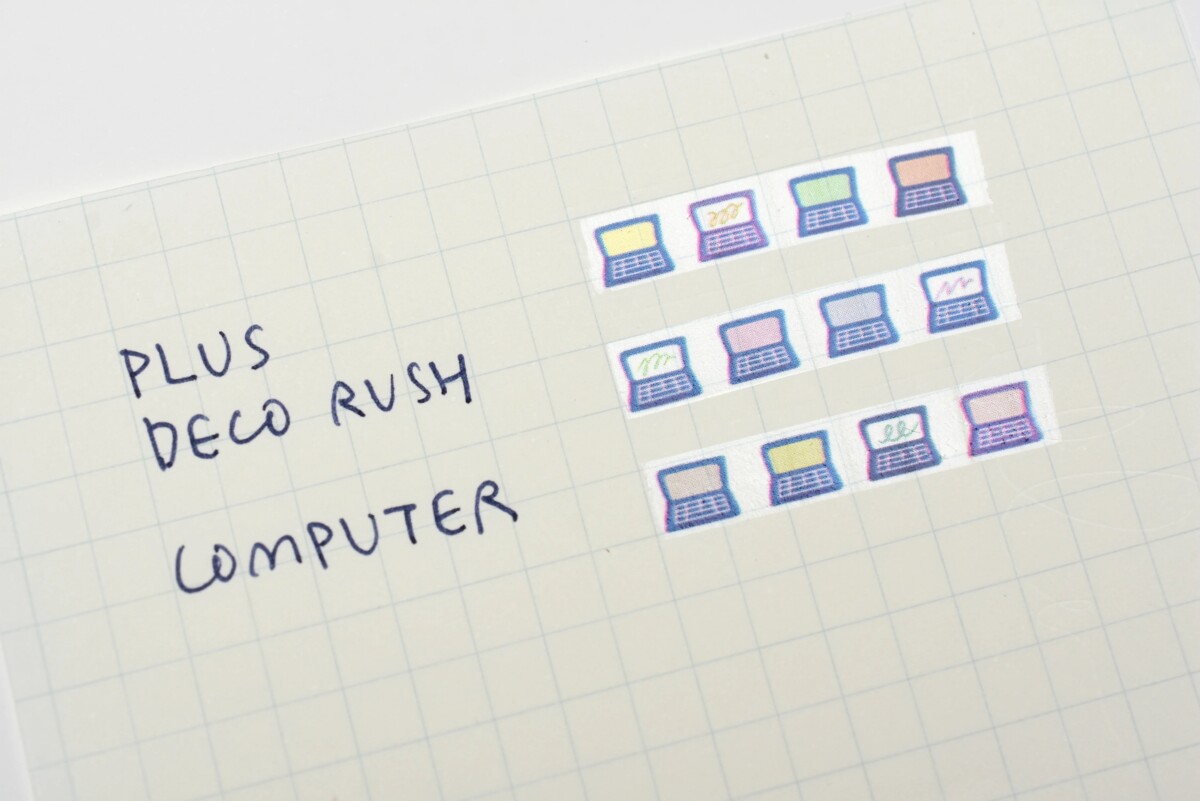 PLUS
DECO RUSH
COMPUTER